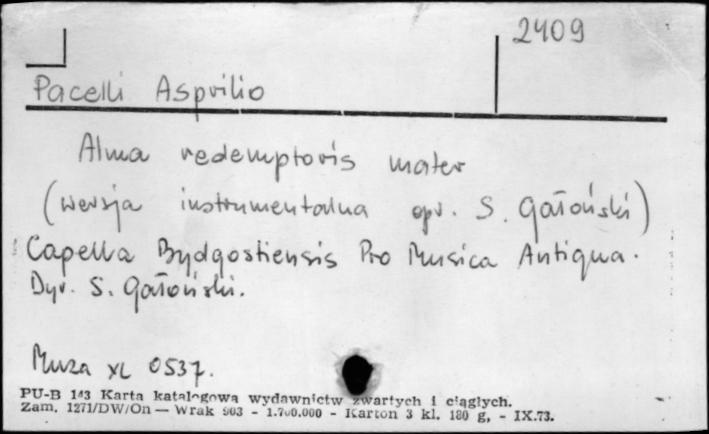 2409
Pacelli Asprilio
Alma redemptoris mater
(wersja instrumentalna opr. S. Gałoński)
Capella Bydgostiensis Pro Musica Antiqua.
Dyr. S. Gałoński.
Muza XL 0537.
PU-B 143 Karta katalogowa wydawnictw zwartych i ciągłych.
Zam. 1271/DW/On — Wrak 903 - 1.700.000 - Karton 3 kl. 180 g, - IX.73.